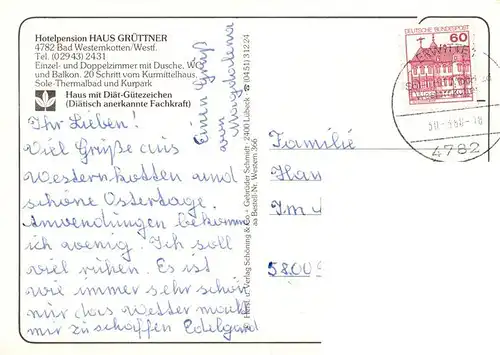 Hotelpension HAUS GRÜTTNER
4782 Bad Westernkotten/Westf.
Tel. (02943) 2431
Einzel- und Doppelzimmer mit Dusche, WC
und Balkon. 20 Schritt vom Kurmittelhaus,
Sole-Thermalbad und Kurpark
Haus mit Diät-Gütezeichen
(Diätisch anerkannte Fachkraft)
Ihr Lieben!
Viel Grüße aus
Westernkotten und
schöne Ostertage.
Anwendungen bekomm
ich wenig. Ich soll
viel ruhen. Es ist
wie immer sehr schön
nur das Wetter macht
mir zu schaffen Edelgard
Einen Gruß
von Magdalena
Horst. u. Verlag Schöning & Co + Gebrüder Schmidt · 2400 Lübeck ☎ (0451) 31224
aa Bestell-Nr. Western 366
DEUTSCHE BUNDESPOST
60
ERWITTE
4782
Familie
Han
Im
5800